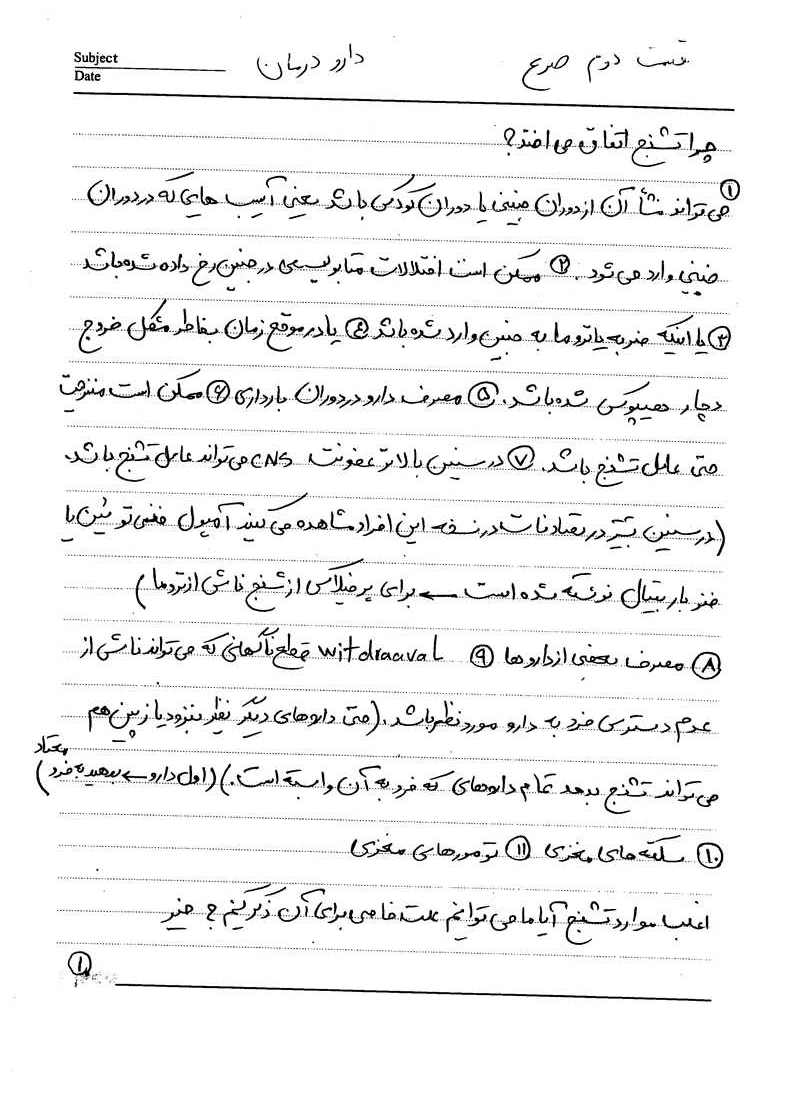 Subject
Date
دارو درمان
قسمت دوم صرع
چرا تشنج اتفاق می افتد؟
① می تواند منشأ آن از دوران جنینی یا دوران کودکی باشد یعنی آسیب هایی که در دوران
جنینی وارد می شود. ② ممکن است اختلالات متابولیسمی در جنین رخ داده شده باشد
③ یا اینکه ضربه یا تروما به جنین وارد شده باشد ④ یا در موقع زمان بخاطر مشکل خروج
دچار هیپوکسی شده باشد. ⑤ مصرف دارو در دوران بارداری ⑥ ممکن است مننژیت
حتی عامل تشنج باشد. ⑦ در سنین بالاتر عفونت CNS می تواند عامل تشنج باشد.
(در سنین بیشتر در تصادفات در نسخه این افراد مشاهده می کنید آمپول فنی توئین یا
فنو باربیتال نوشته شده است ← برای پرفیلاکسی از تشنج ناشی از تروما)
⑧ مصرف بعضی از داروها ⑨ witdraaval قطع ناگهانی که می تواند ناشی از
عدم دسترسی فرد به دارو مورد نظر باشد. (حتی داروهای دیگر نظیر بنزودیازپین هم
می تواند تشنج بدهد تمام داروهایی که فرد به آن وابسته است.) (اول دارو ← بدهید به فرد معتاد)
⑩ سکته های مغزی ⑪ تومورهای مغزی
اغلب موارد تشنج آیا ما می توانیم علت خاصی برای آن ذکر کنیم ؟ خیر
①